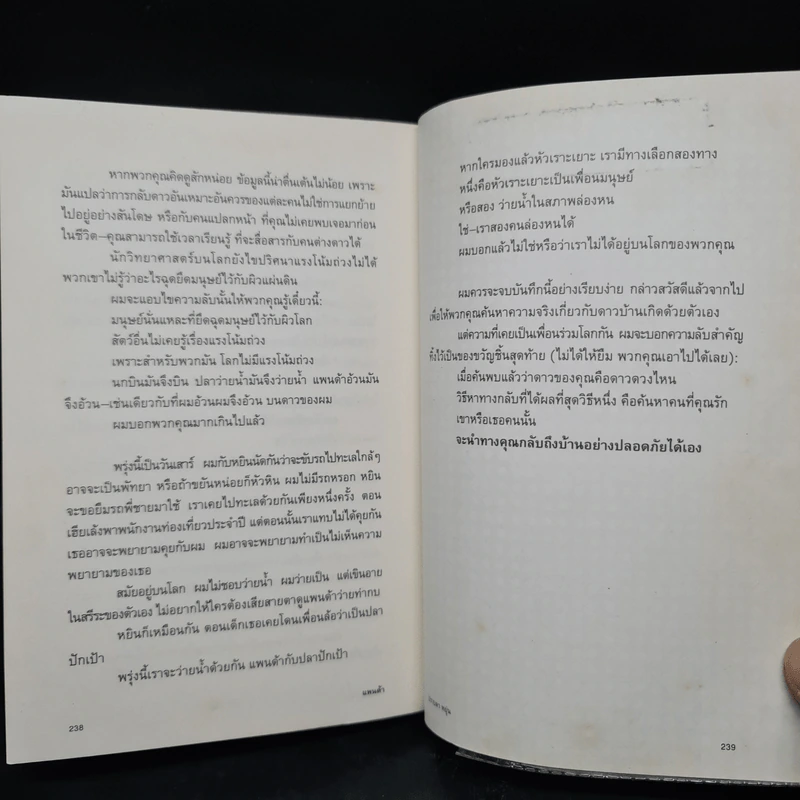 หากพวกคุณคิดดูสักหน่อย ข้อมูลนี้น่าตื่นเต้นไม่น้อย เพราะ
มันแปลว่าการกลับดาวอันเหมาะอันควรของแต่ละคนไม่ใช่การแยกย้าย
ไปอยู่อย่างสันโดษ หรือกับคนแปลกหน้า ที่คุณไม่เคยพบเจอมาก่อน
ในชีวิต–คุณสามารถใช้เวลาเรียนรู้ ที่จะสื่อสารกับคนต่างดาวได้
นักวิทยาศาสตร์บนโลกยังไขปริศนาแรงโน้มถ่วงไม่ได้
พวกเขาไม่รู้ว่าอะไรฉุดยึดมนุษย์ไว้กับผิวแผ่นดิน
ผมจะแอบไขความลับนั้นให้พวกคุณรู้เดี๋ยวนี้:
มนุษย์นั่นแหละที่ยึดฉุดมนุษย์ไว้กับผิวโลก
สัตว์อื่นไม่เคยรู้เรื่องแรงโน้มถ่วง
เพราะสำหรับพวกมัน โลกไม่มีแรงโน้มถ่วง
นกบินมันจึงบิน ปลาว่ายน้ำมันจึงว่ายน้ำ แพนด้าอ้วนมัน
จึงอ้วน–เช่นเดียวกับที่ผมอ้วนผมจึงอ้วน บนดาวของผม
ผมบอกพวกคุณมากเกินไปแล้ว
พรุ่งนี้เป็นวันเสาร์ ผมกับหยินนัดกันว่าจะขับรถไปทะเลใกล้ๆ
อาจจะเป็นพัทยา หรือถ้าขยันหน่อยก็หัวหิน ผมไม่มีรถหรอก หยิน
จะขอยืมรถพี่ชายมาใช้ เราเคยไปทะเลด้วยกันเพียงหนึ่งครั้ง ตอน
เฮียเล้งพาพนักงานท่องเที่ยวประจำปี แต่ตอนนั้นเราแทบไม่ได้คุยกัน
เธออาจจะพยายามคุยกับผม ผมอาจจะพยายามทำเป็นไม่เห็นความ
พยายามของเธอ
สมัยอยู่บนโลก ผมไม่ชอบว่ายน้ำ ผมว่ายเป็น แต่เขินอาย
ในสรีระของตัวเอง ไม่อยากให้ใครต้องเสียสายตาดูแพนด้าว่ายท่ากบ
หยินก็เหมือนกัน ตอนเด็กเธอเคยโดนเพื่อนล้อว่าเป็นปลา
ปักเป้า
พรุ่งนี้เราจะว่ายน้ำด้วยกัน แพนด้ากับปลาปักเป้า
แพนด้า
238
หากใครมองแล้วหัวเราะเยาะ เรามีทางเลือกสองทาง
หนึ่งคือหัวเราะเยาะเป็นเพื่อนมนุษย์
หรือสอง ว่ายน้ำในสภาพล่องหน
ใช่–เราสองคนล่องหนได้
ผมบอกแล้วไม่ใช่หรือว่าเราไม่ได้อยู่บนโลกของพวกคุณ
ผมควรจะจบบันทึกนี้อย่างเรียบง่าย กล่าวสวัสดีแล้วจากไป
เพื่อให้พวกคุณค้นหาความจริงเกี่ยวกับดาวบ้านเกิดด้วยตัวเอง
แต่ความที่เคยเป็นเพื่อนร่วมโลกกัน ผมจะบอกความลับสำคัญ
ทิ้งไว้เป็นของขวัญชิ้นสุดท้าย (ไม่ได้ให้ยืม พวกคุณเอาไปได้เลย):
เมื่อค้นพบแล้วว่าดาวของคุณคือดาวดวงไหน
วิธีหาทางกลับที่ได้ผลที่สุดวิธีหนึ่ง คือค้นหาคนที่คุณรัก
เขาหรือเธอคนนั้น
จะนำทางคุณกลับถึงบ้านอย่างปลอดภัยได้เอง
หยุ่น
239